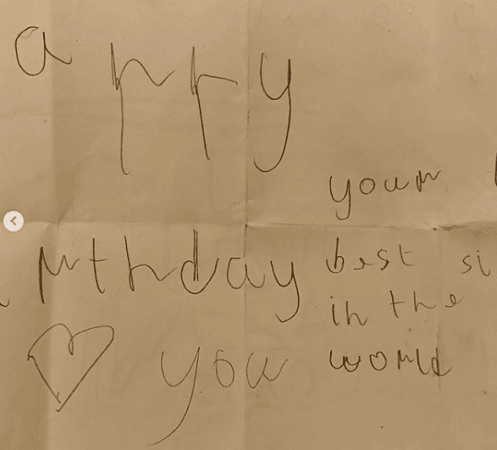 appy
your
rthday best si
in the
you world